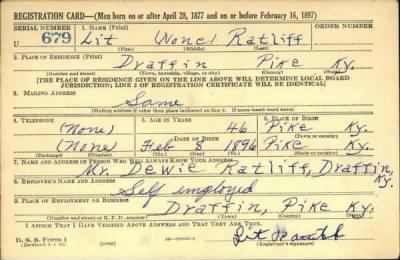 REGISTRATION CARD—(Men born on or after April 28, 1877 and on or before February 16, 1897)
SERIAL NUMBER 1. NAME (Print) ORDER NUMBER
U 679 Lit (None) Ratliff
(First) (Middle) (Last)
2. PLACE OF RESIDENCE (Print)
Draffin Pike Ky.
(Number and street) (Town, township, village, or city) (County) (State)
[THE PLACE OF RESIDENCE GIVEN ON THE LINE ABOVE WILL DETERMINE LOCAL BOARD
JURISDICTION; LINE 2 OF REGISTRATION CERTIFICATE WILL BE IDENTICAL]
3. MAILING ADDRESS
Same
[Mailing address if other than place indicated on line 2. If same insert word same]
4. TELEPHONE 5. AGE IN YEARS 6. PLACE OF BIRTH
(None) 46 Pike
DATE OF BIRTH (Town or county)
(None) Feb 8 1896 Pike Ky.
(Exchange) (Number) (Mo.) (Day) (Yr.) (State or country)
7. NAME AND ADDRESS OF PERSON WHO WILL ALWAYS KNOW YOUR ADDRESS
Mr. Dewie Ratliff, Draffin, Ky.
8. EMPLOYER'S NAME AND ADDRESS
Self employed
9. PLACE OF EMPLOYMENT OR BUSINESS
Draffin, Pike Ky.
(Number and street or R. F. D. number) (Town) (County) (State)
I AFFIRM THAT I HAVE VERIFIED ABOVE ANSWERS AND THAT THEY ARE TRUE.
D. S. S. Form 1 (over)
(Registrant's signature)